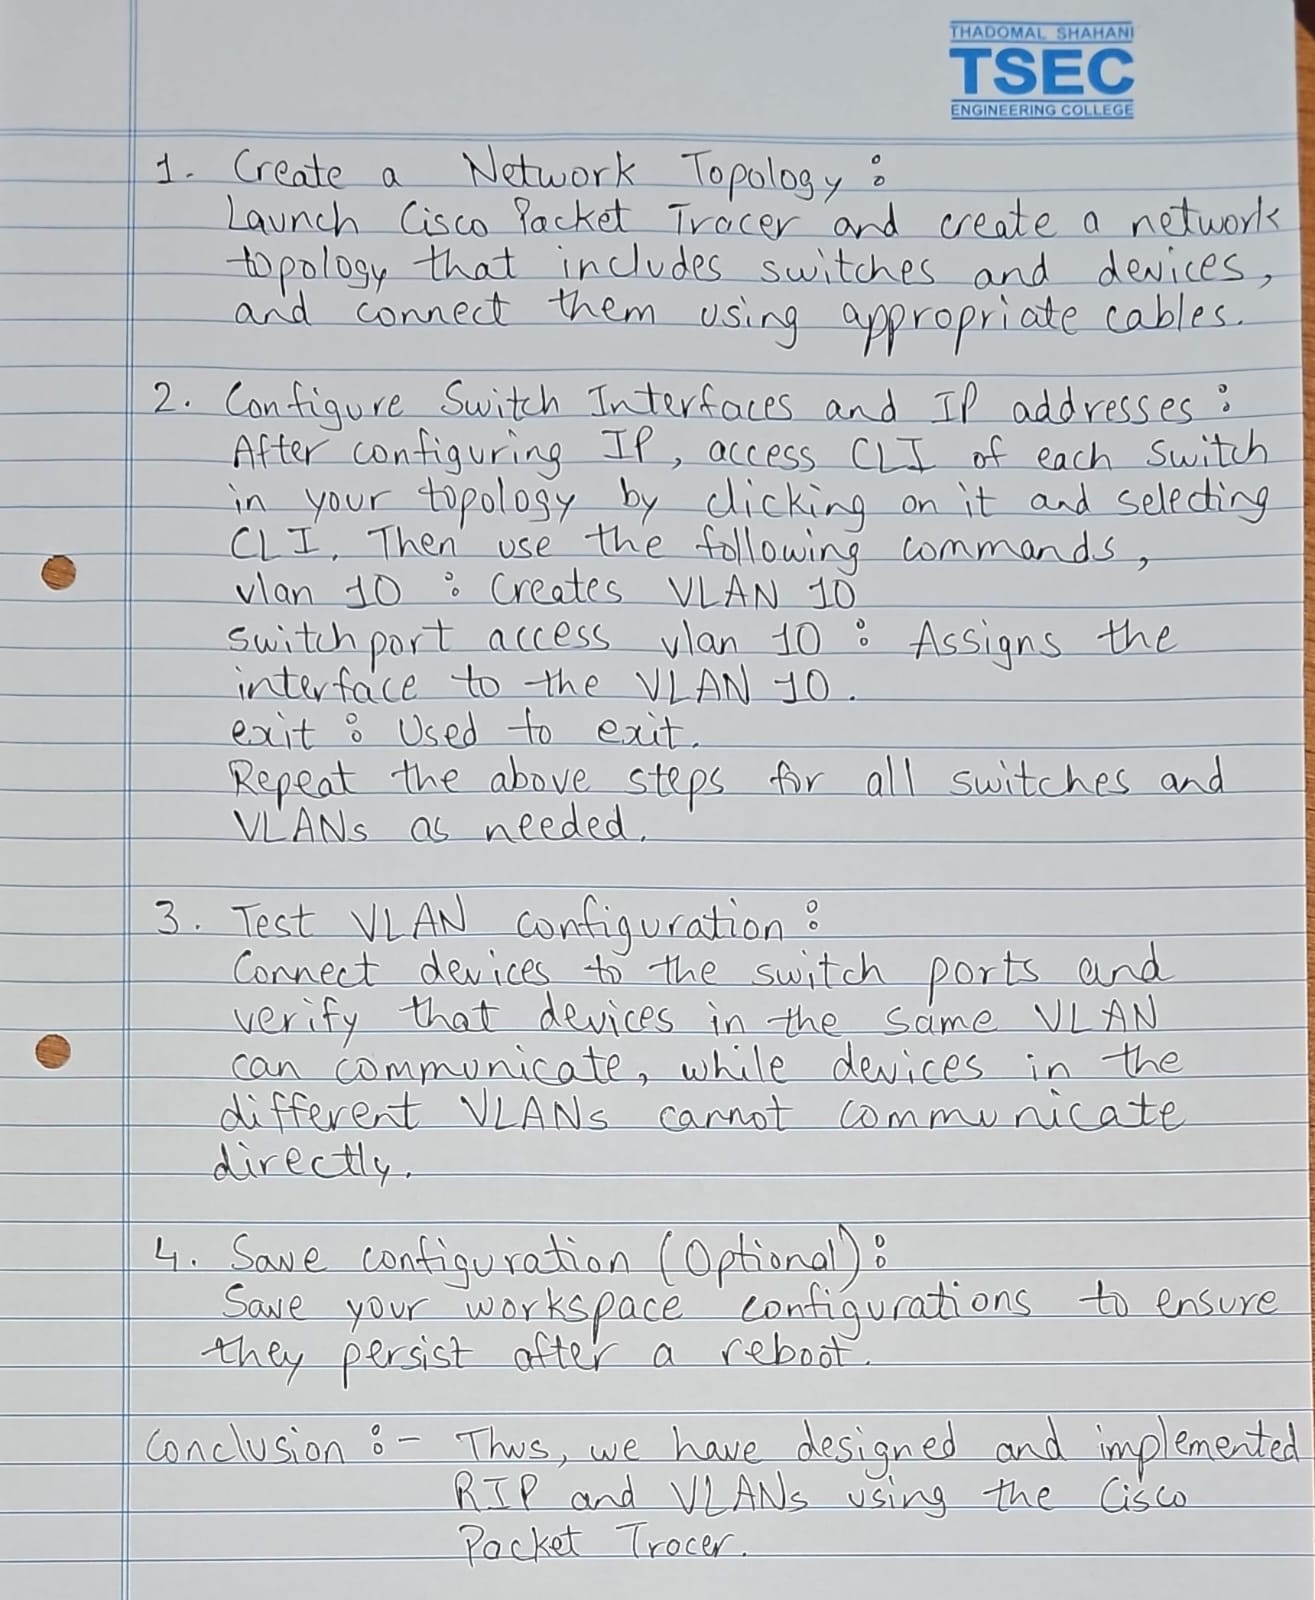 THADOMAL SHAHANI
TSEC
ENGINEERING COLLEGE
1. Create a Network Topology :
Launch Cisco Packet Tracer and create a network
topology that includes switches and devices,
and connect them using appropriate cables.
2. Configure Switch Interfaces and IP addresses :
After configuring IP, access CLI of each switch
in your topology by clicking on it and selecting
CLI. Then use the following commands,
vlan 10 : Creates VLAN 10
switchport access vlan 10 : Assigns the
interface to the VLAN 10.
exit : Used to exit.
Repeat the above steps for all switches and
VLANs as needed.
3. Test VLAN configuration :
Connect devices to the switch ports and
verify that devices in the same VLAN
can communicate, while devices in the
different VLANs cannot communicate
directly.
4. Save configuration (Optional) :
Save your workspace configurations to ensure
they persist after a reboot.
Conclusion :- Thus, we have designed and implemented
RIP and VLANs using the Cisco
Packet Tracer.